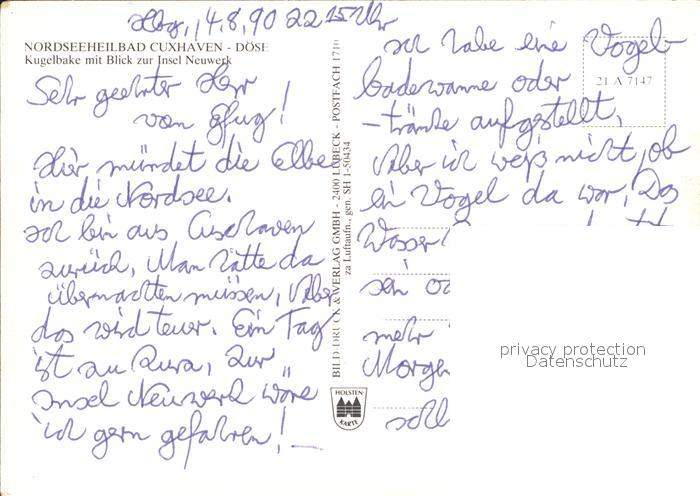 Hbg, 14.8.90 22 15 Uhr
NORDSEEHEILBAD CUXHAVEN - DÖSE
Kugelbake mit Blick zur Insel Neuwerk
Sehr geehrter Herr
vom
Hier mündet die Elbe
in die Nordsee.
Ich bin aus Cuxhaven
zurück, Man hätte da
übernachten müssen, Aber
das wird teuer. Ein Tag
ist zu kurz, Zur
Insel Neuwerk wäre
ich gern gefahren!
BILD DRUCK & VERLAG GMBH - 2400 LÜBECK - POSTFACH 1710
zu Luftaufn., gen. SH 1-50434
HOLSTEN-
KARTE
Ich habe eine Vogel-
badewanne oder
-tränke aufgestellt,
Aber ich weiß nicht, ob
ein Vogel da war, Das
Wasser
sein
mehr
Morgen
21 A 7147
privacy protection
Datenschutz